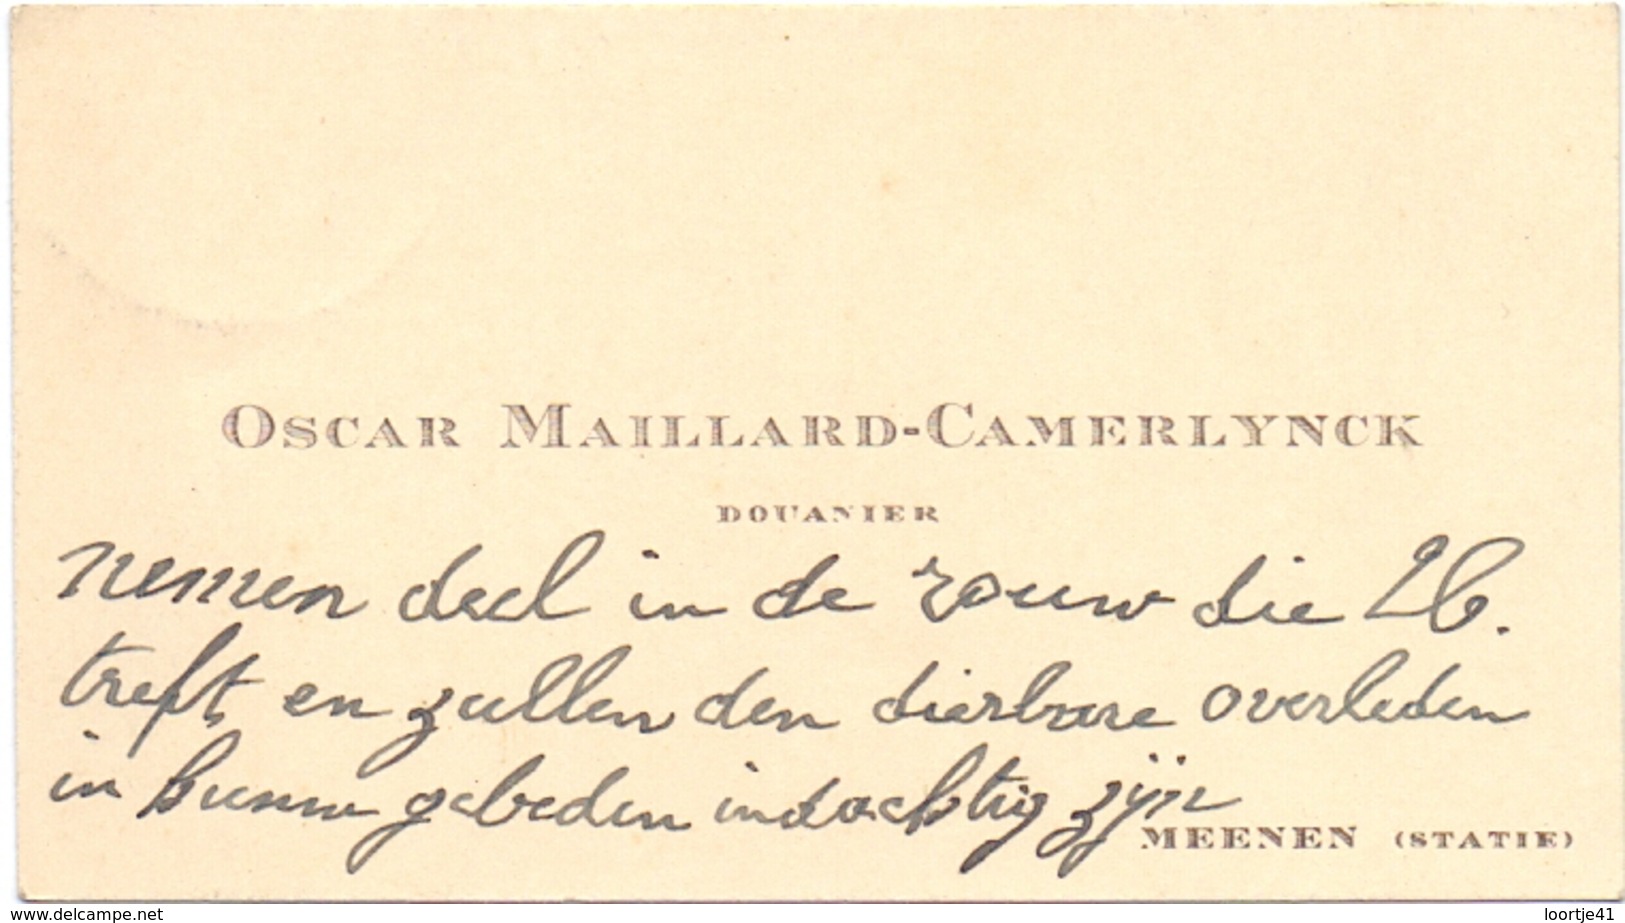 Oscar Maillard-Camerlynck
DOUANIER
nemen deel in de rouw die Ub.
treft, en zullen den dierbare overleden
in hunne gebeden indachtig zijn
MEENEN (STATIE)
www.delcampe.net
loortje41